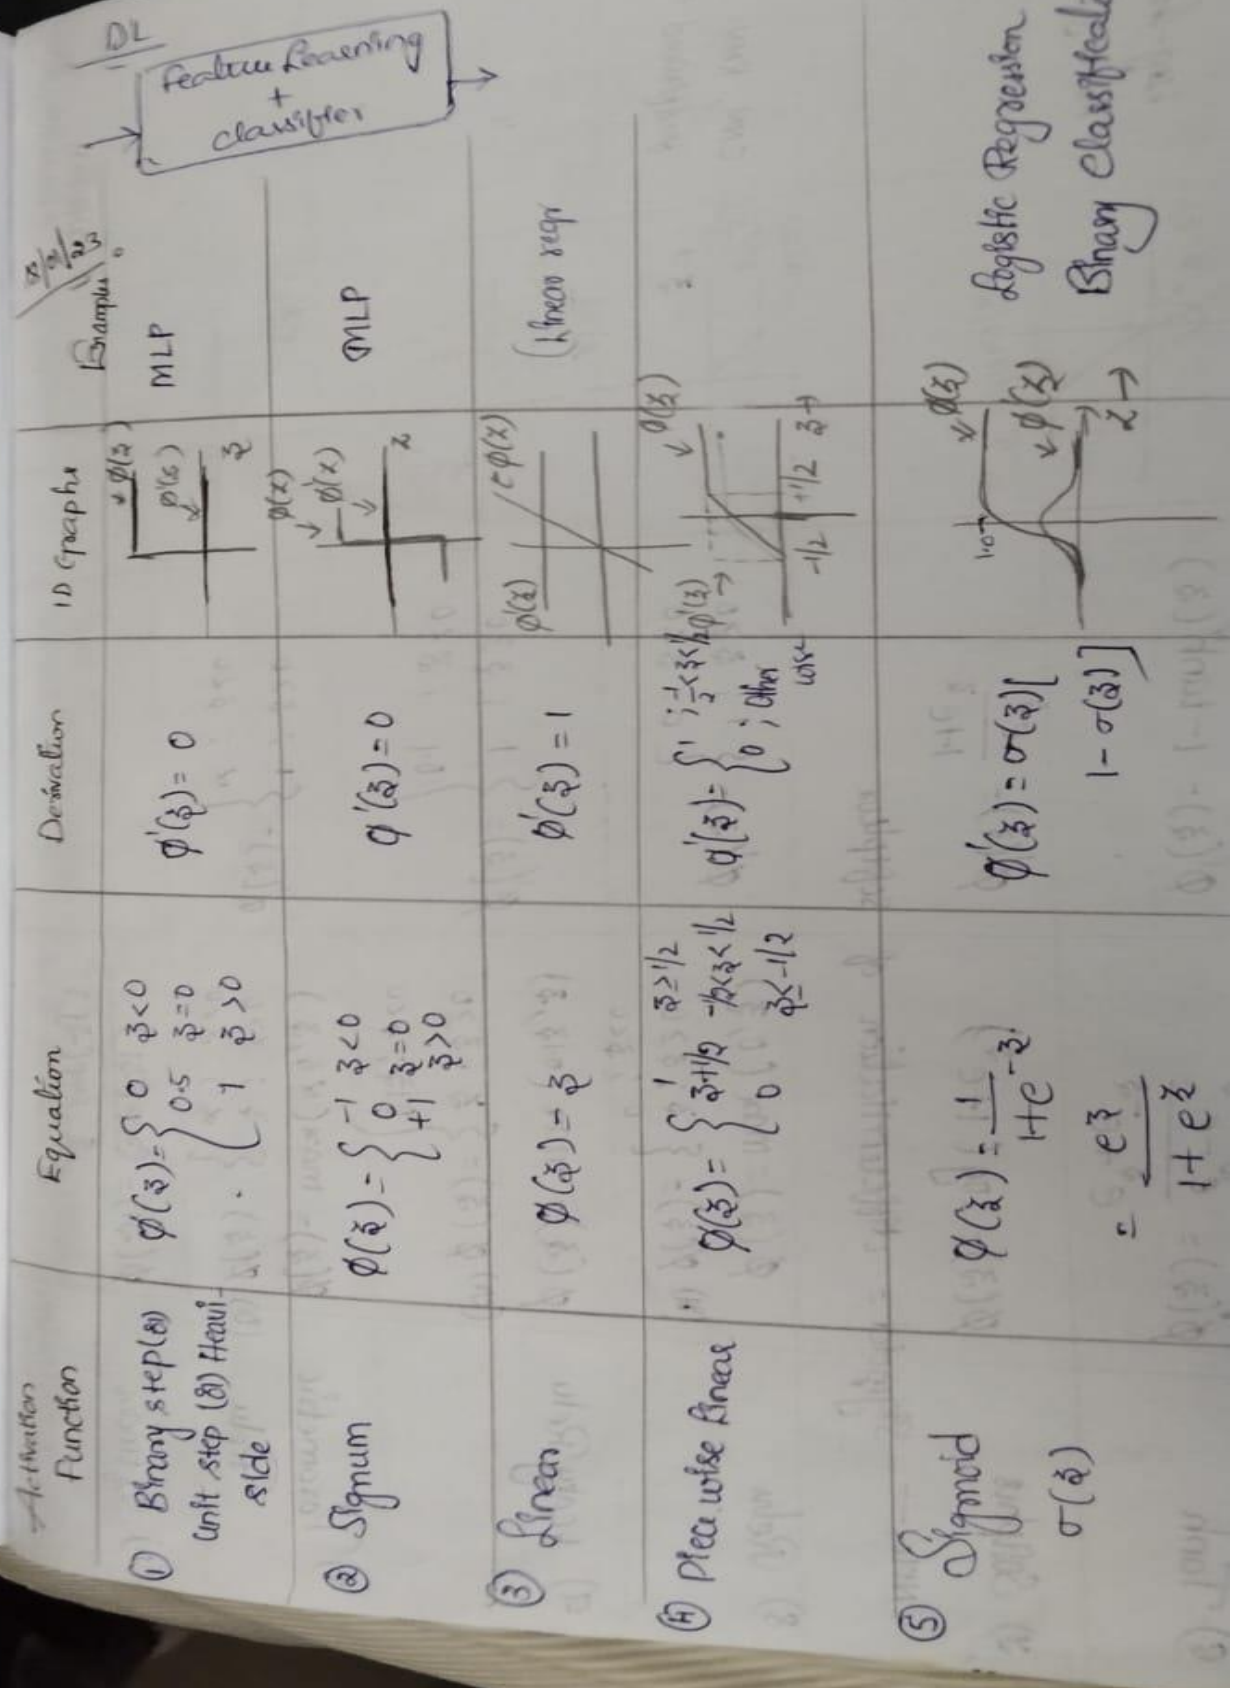 DL
Feature Learning
+
classifier
Activation Function
Equation
Derivation
1D Graphs
Examples
① Binary step (or)
unit step (or) Heavi-
side
φ(z) = { 0 z<0
0.5 z=0
1 z>0
φ'(z) = 0
φ(z)
φ'(z)
z
MLP
② Signum
φ(z) = { -1 z<0
0 z=0
+1 z>0
φ'(z) = 0
φ(z)
φ'(z)
z
MLP
③ Linear
φ(z) = z
φ'(z) = 1
φ'(z)
φ(z)
Linear regr
④ Piece wise linear
φ(z) = { 1 z≥1/2
z+1/2 -1/2<z<1/2
0 z≤-1/2
φ'(z) = { 1 ; -1/2<z<1/2
0 ; other
wise
φ'(z)
φ(z)
-1/2 +1/2 z→
⑤ Sigmoid
σ(z)
φ(z) = 1/(1+e^-z)
= e^z/(1+e^z)
φ'(z) = σ(z)[
1-σ(z)]
1.0
φ(z)
φ'(z)
z→
Logistic Regression
Binary Classificati